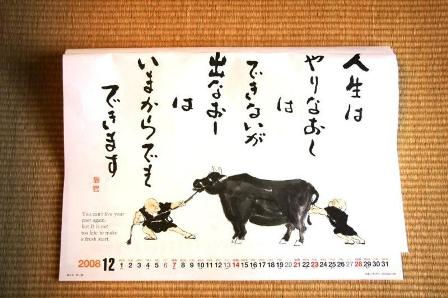 人生は
やりなおし
は
できないが
出なおし
は
いまからでも
できます
You can't live your
past again,
but it is not
too late to make
a fresh start.
2008 12 1 2 3 4 5 6 7 8 9 10 11 12 13 14 15 16 17 18 19 20 21 22 23 24 25 26 27 28 29 30 31